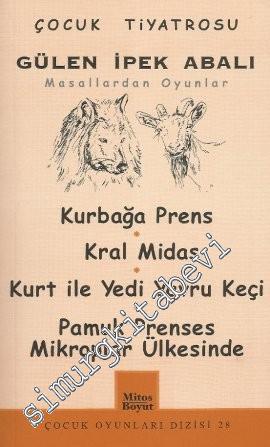 ÇOCUK TİYATROSU
GÜLEN İPEK ABALI
Masallardan Oyunlar
Kurbağa Prens
Kral Midas
Kurt ile Yedi Yavru Keçi
Pamuk Prenses
Mikroplar Ülkesinde
Mitos
Boyut
ÇOCUK OYUNLARI DİZİSİ 28
simurgkitabevi